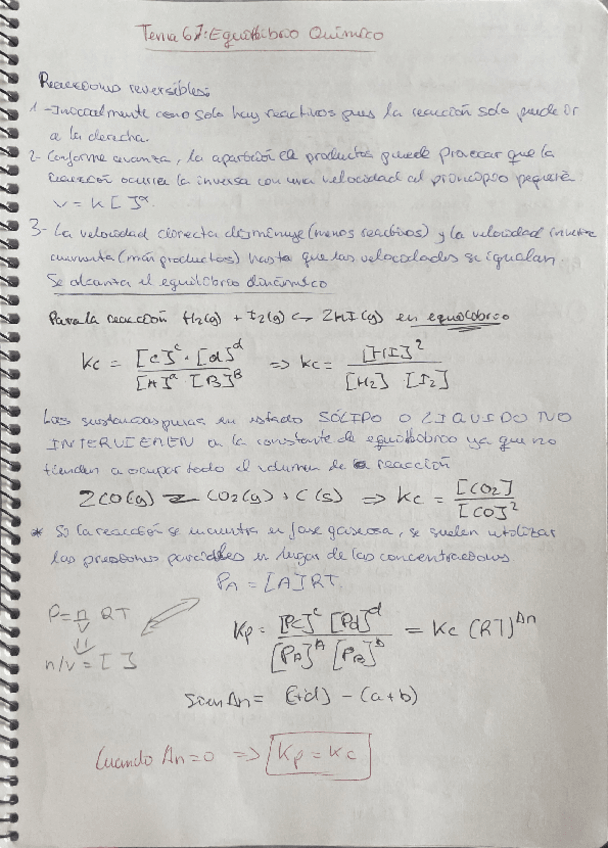 Tema 6/7: Equilibrio Químico
Reacciones reversibles:
1-Inicialmente como solo hay reactivos pues la reacción solo puede ir
a la derecha.
2- Conforme avanza, la aparición de productos puede provocar que la
reacción ocurra la inversa con una velocidad al principio pequeña
v = k [ ]^α.
3- La velocidad directa disminuye (menos reactivos) y la velocidad inversa
aumenta (más productos) hasta que las velocidades se igualan.
Se alcanza el equilibrio dinámico
Para la reacción H2(g) + I2(g) ⇌ 2HI(g) en equilibrio
Kc = [C]^c · [d]^d / [A]^a · [B]^B => Kc = [HI]^2 / [H2] · [I2]
Las sustancias puras en estado SÓLIDO O LIQUIDO NO
INTERVIENEN en la constante de equilibrio ya que no
tienden a ocupar todo el volumen de la reacción
2CO(g) ⇌ CO2(g) + C(s) => Kc = [CO2] / [CO]^2
* Si la reacción se encuentra en fase gaseosa, se suelen utilizar
las presiones parciales en lugar de las concentraciones
PA = [A]RT
P = n/V RT
n/v = [ ]
Kp = [Pc]^c [Pd]^d / [PA]^A [PB]^b = Kc (RT)^Δn
Δn = (c+d) - (a+b)
Cuando Δn=0 => Kp = Kc